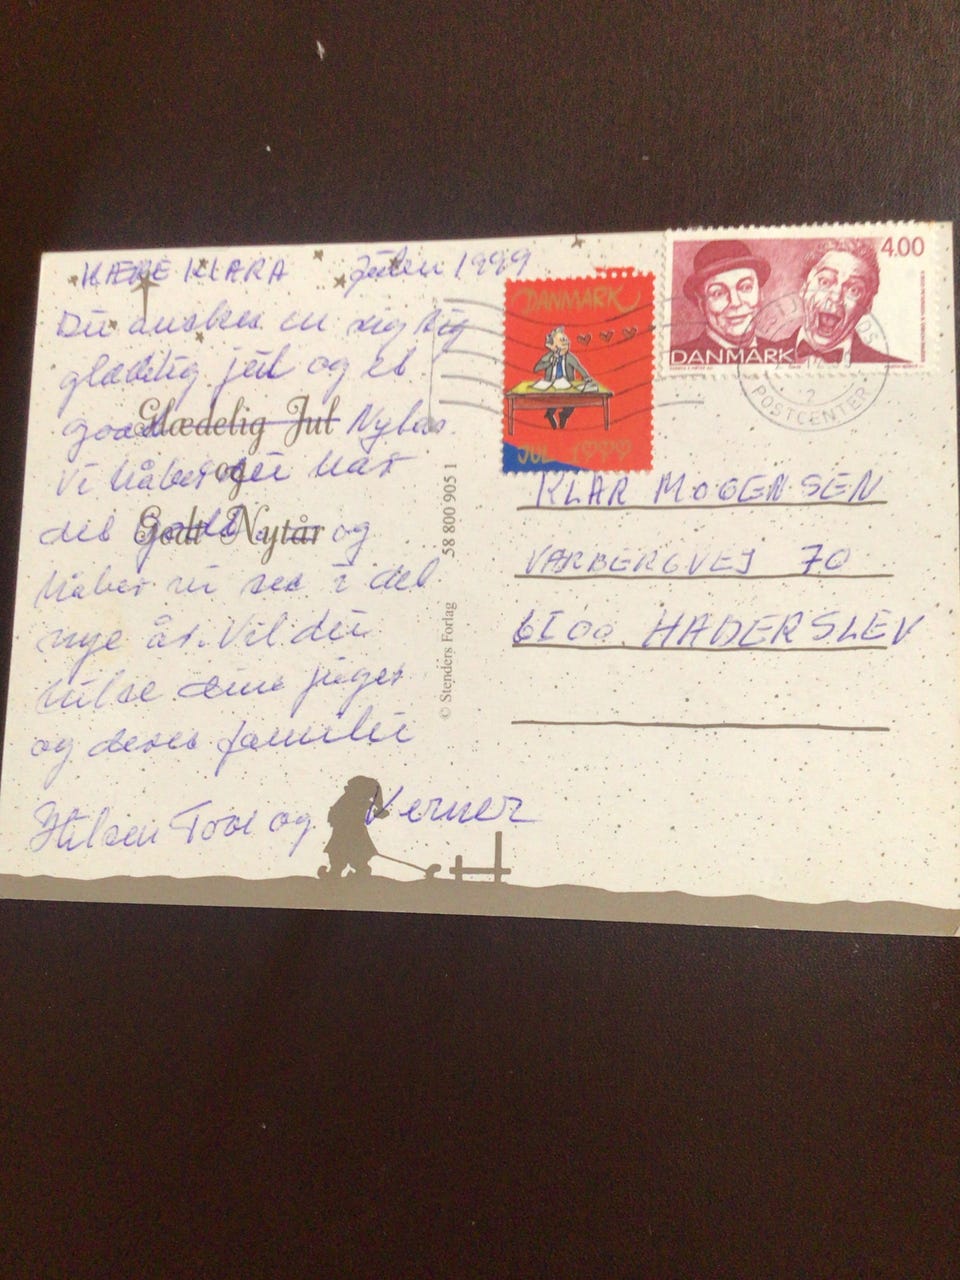 KÆRE KLARA Julen 1999
Du ønskes en rigtig
glædelig jul og et
godt Nytår
Vi håber du har
det godt og
håber vi ses i det
nye år. Vil du
hilse dine piger
og deres familie
Hilsen Tove og Verner
Glædelig Jul
og
Godt Nytår
58 800 905 1
© Stenders Forlag
DANMARK
JUL 1999
4.00
DANMARK
POSTCENTER
2
KLAR MOGENSEN
VARBERGVEJ 70
6100 HADERSLEV